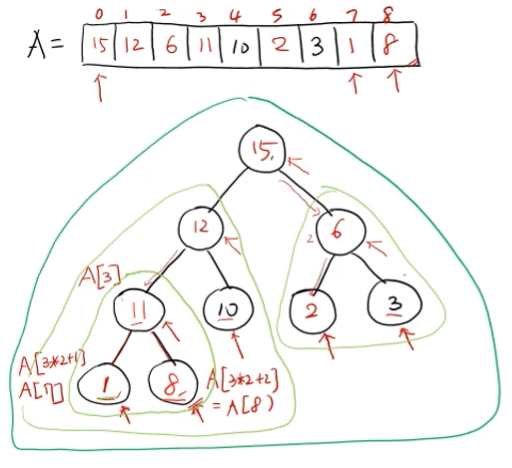 0 1 2 3 4 5 6 7 8
A= 15 12 6 11 10 2 3 1 8
15
12 2 6
A[3]
11 10 2 3
A[3*2+1]
A[7] 1 8 A[3*2+2]
= A[8)